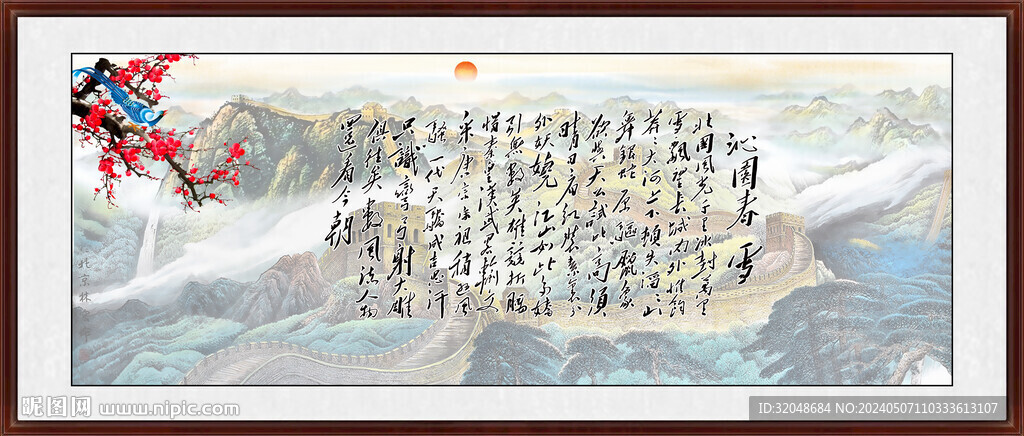 沁園春 雪
北国風光千里冰封万里
雪飘望长城内外惟余
莽莽大河上下顿失滔滔山
舞银蛇原驰蜡象
欲与天公试比高须
晴日看红装素裹分
外妖娆江山如此多娇
引无数英雄竞折腰
惜秦皇汉武略输文
采唐宗宋祖稍逊风
骚一代天骄成吉思汗
只識弯弓射大雕
俱往矣数風流人物
还看今朝
昵图网 www.nipic.com
ID:32048684 NO:20240507110333613107